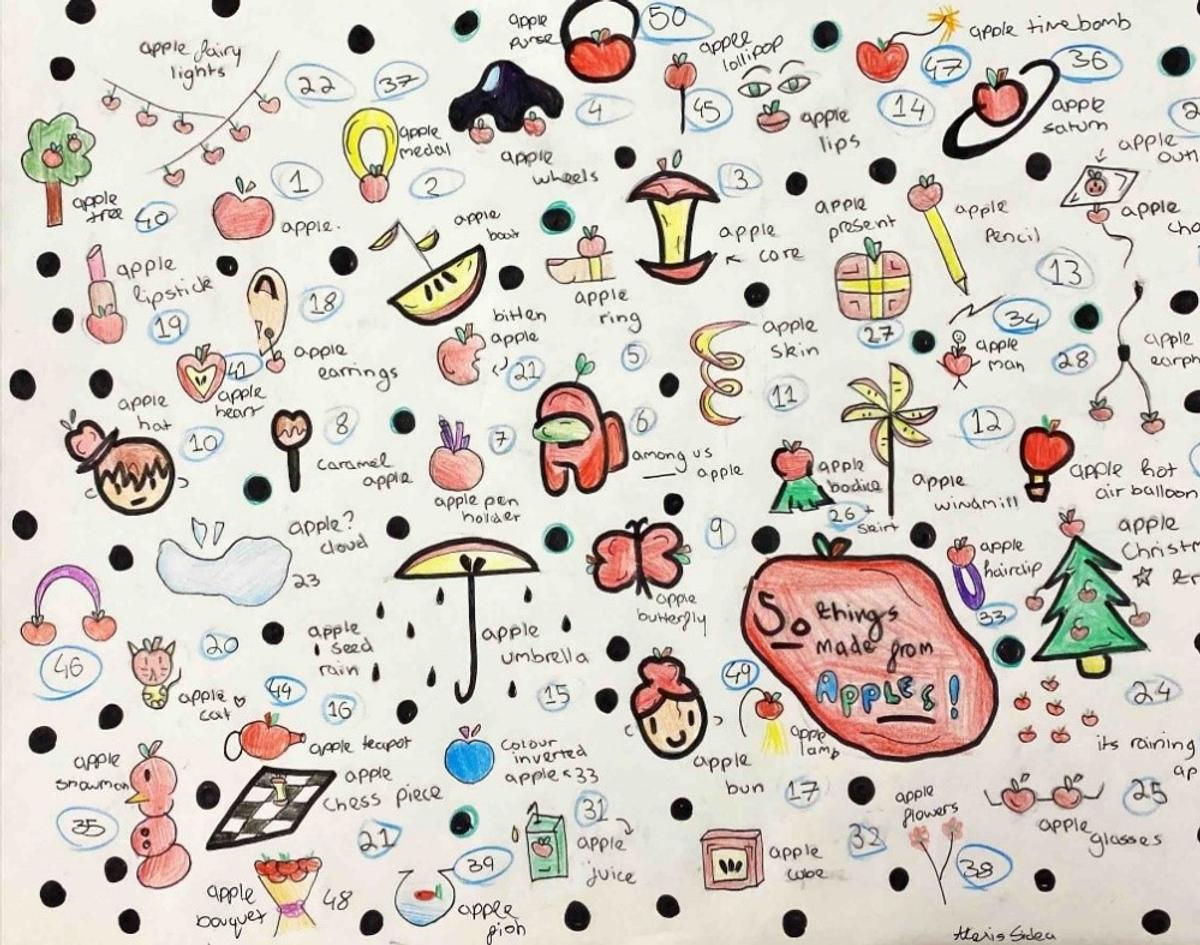 apple
purse
50
apple fairy
lights
22
37
apple
lollipop
45
apple time bomb
47
36
apple
saturn
14
apple
lips
4
apple
wheels
apple
medal
2
1
apple.
apple
tree
40
3
apple
core
apple
present
27
apple
pencil
13
apple
apple
boat
apple
ring
5
apple
lipstick
19
18
apple
earrings
bitten
apple
21
apple
skin
11
34
apple
man
28
apple
42
apple
heart
apple
hat
10
8
caramel
apple
7
apple pen
holder
6
among us
apple
apple
bodice
+
skirt
26
12
apple
windmill
apple hot
air balloon
apple?
cloud
23
9
apple
butterfly
apple
hairclip
33
apple
46
20
apple
cat
apple
seed
rain
16
apple
umbrella
15
50 things
made from
APPLES!
24
its raining
44
apple teapot
49
apple
lamp
apple
bun
17
colour
inverted
apple < 33
apple
snowman
35
apple
chess piece
21
31
apple
juice
apple
cube
32
apple
flowers
38
25
apple
glasses
apple
bouquet
48
39
apple
fish
Alexis Sidea